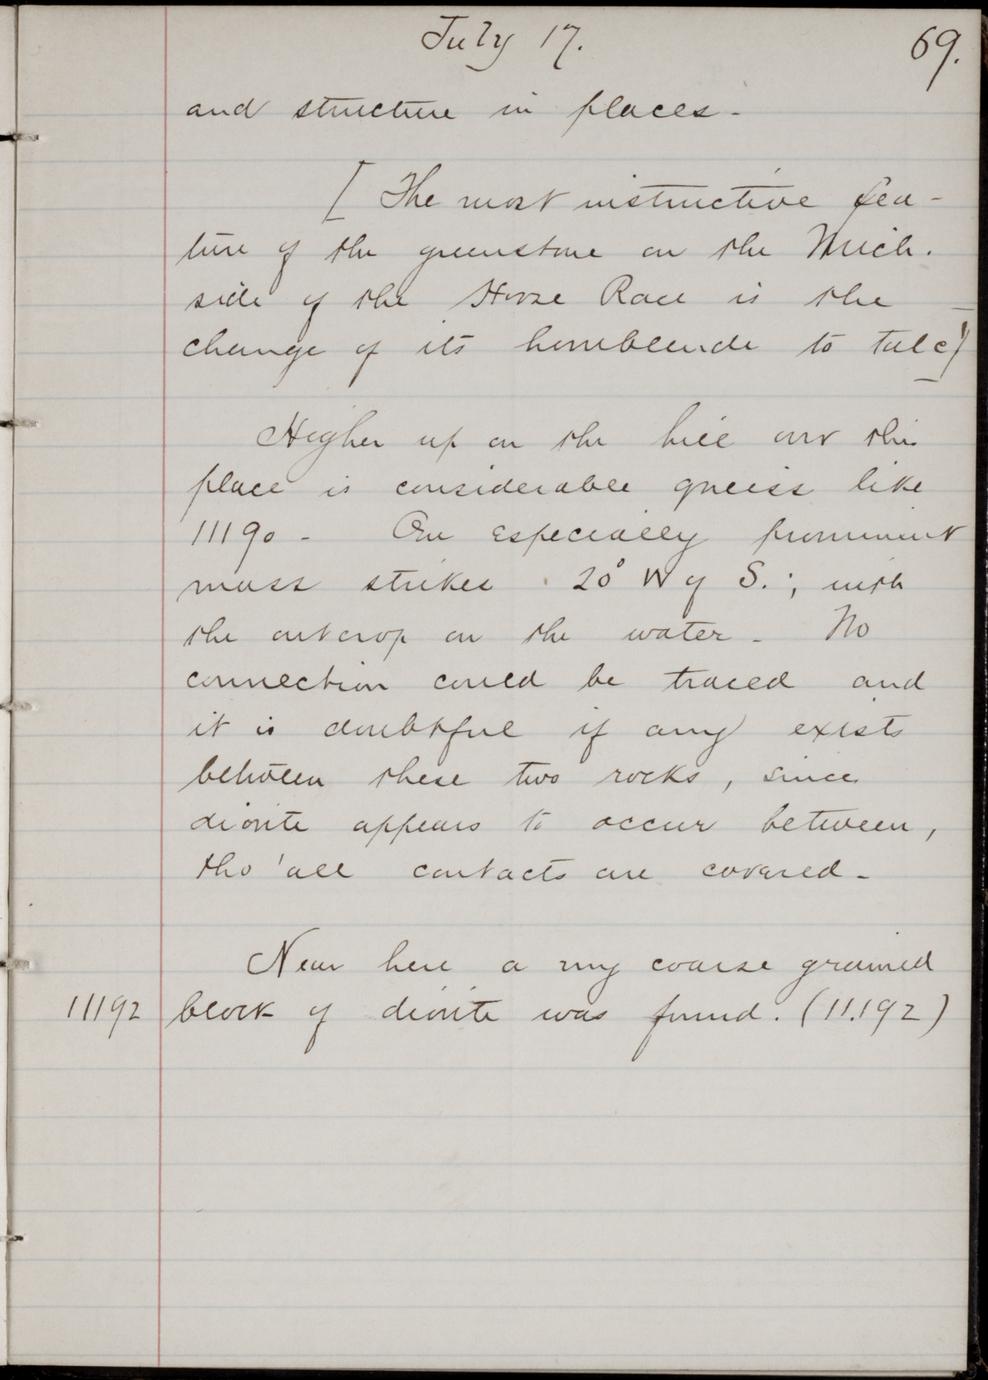 July 17.
69.
and structure in places.
[The most instructive fea-
ture of the greenstone on the Mich.
side of the Horse Race is the
change of its hornblende to talc]
Higher up on the hill over this
place is considerable gneiss like
11190 - One especially prominent
mass strikes 20° W of S.; with
the outcrop on the water. No
connection could be traced and
it is doubtful if any exists
between these two rocks, since
diorite appears to occur between,
tho' all contacts are covered.
Near here a very coarse grained
11192 block of diorite was found. (11.192)